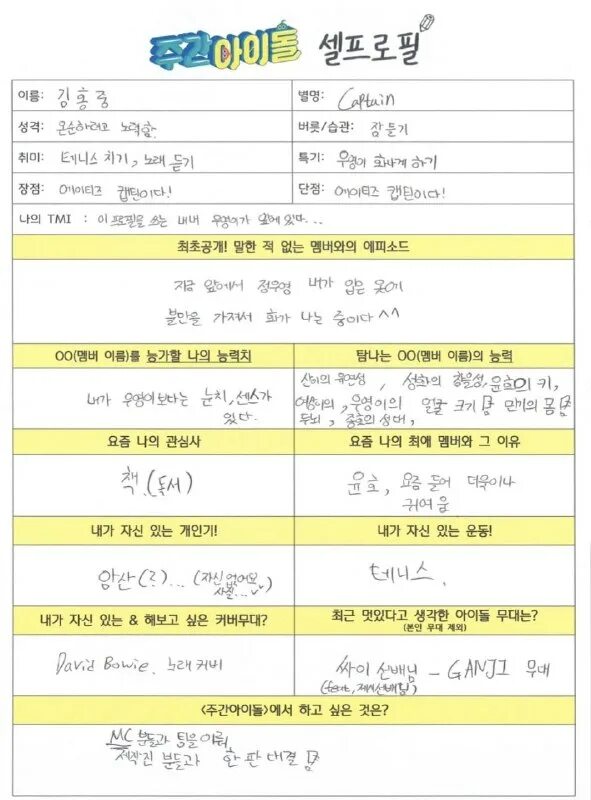 주간아이돌 셀프로필
이름: 김홍중
별명: Captain
성격: 온순하려고 노력함.
버릇/습관: 잠들기
취미: 테니스 치기, 노래 듣기
특기: 우영이 화나게 하기
장점: 에이티즈 캡틴이다!
단점: 에이티즈 캡틴이다!
나의 TMI : 이 프로필을 쓰는 내내 우영이가 앞에 있다...
최초공개! 말한 적 없는 멤버와의 에피소드
지금 앞에서 정우영 내가 입은 옷에
불만을 가져서 화가 나는 중이다 ^^
OO(멤버 이름)를 능가할 나의 능력치
내가 우영이보다는 눈치, 센스가
있다.
탐나는 OO(멤버 이름)의 능력
산이의 유연성, 성화의 청결성, 윤호의 키,
여상이의 두뇌, 우영이의 얼굴 크기 민기의 몸
종호의 성대,
요즘 나의 관심사
책 (독서)
요즘 나의 최애 멤버와 그 이유
윤호, 요즘 들어 더욱이나
귀여움
내가 자신 있는 개인기!
암산(?)... (자신 없어요 사실...)
내가 자신 있는 운동!
테니스.
내가 자신 있는 & 해보고 싶은 커버무대?
David Bowie. 노래 커버
최근 멋있다고 생각한 아이돌 무대는?
(본인 무대 제외)
싸이 선배님 - GANJI 무대
(feat, 제시선배님)
<주간아이돌>에서 하고 싶은 것은?
MC 분들과 팀을 이뤄,
제작진 분들과 한 판 대결